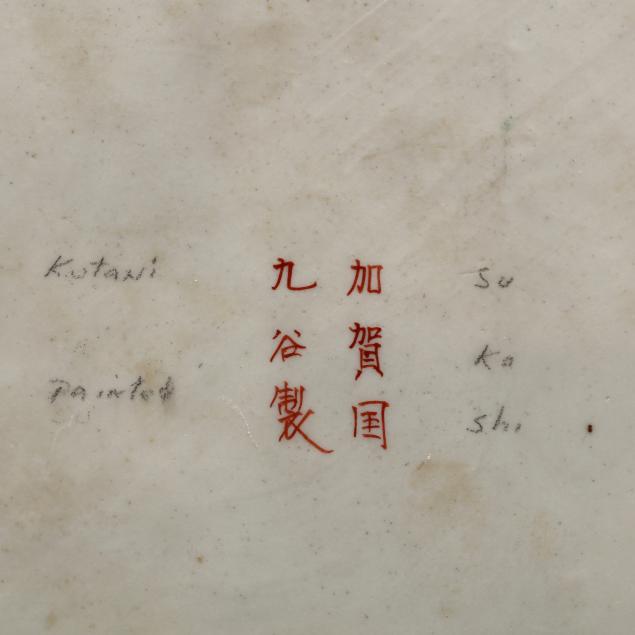 加賀囯
九谷製
Kutani
painted
Su
Ko
Shi